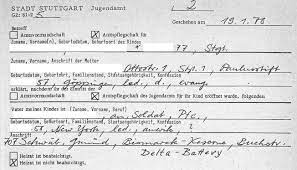 STADT STUTTGART Jugendamt
Geschehen am 19.1.78
Betreff
Amtsvormundschaft
Amtspflegschaft für
Zuname, Vorname(n), Geburtsdatum, Geburtsort des Kindes
77, Stgt.
Zuname, Vorname(n), Anschrift der Mutter
Ottostr. 1, Stgt. 1, Paulusstift
Geburtsdatum, Geburtsort, Familienstand, Staatsangehörigkeit, Konfession
57, Göppingen, led., d., evang.
Amtsvormundschaft
Amtspflegschaft des Jugendamts für das Kind eröffnet wurde, folgendes:
Vater meines Kindes ist (Zuname, Vorname, Beruf)
Soldat Pfc.,
Geburtsdatum, Geburtsort, Familienstand, Staatsangehörigkeit, Konfession
New York, led., amerik., ?
Anschrift
707 Schwäb. Gmünd, Bismarck-Kaserne, Buchstr.
Heirat ist beabsichtigt.
Delta-Battery
Heirat ist nicht beabsichtigt.